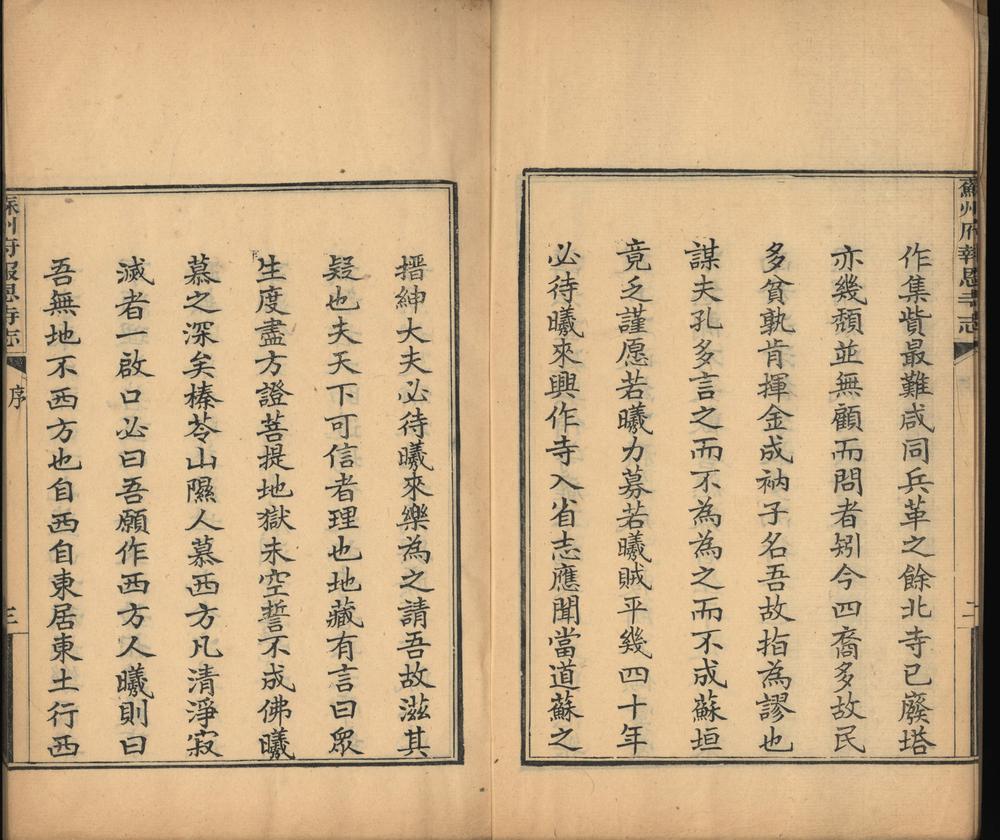 蘇州府報恩寺志
二
作集貲最難咸同兵革之餘北寺已廢塔
亦幾頹並無顧而問者矧今四裔多故民
多貧孰肯揮金成衲子名吾故掐為謬也
謀夫孔多言之而不為為之而不成蘇垣
竟乏謹愿若曦力募若曦賊平幾四十年
必待曦來興作寺入省志應聞當道蘇之
搢紳大夫必待曦來樂為之請吾故滋其
疑也夫天下可信者理也地藏有言曰眾
生度盡方證菩提地獄未空誓不成佛曦
慕之深矣榛苓山隰人慕西方凡清淨寂
滅者一啟口必曰吾願作西方人曦則曰
吾無地不西方也自西自東居東土行西
蘇州府報恩寺志
序
三